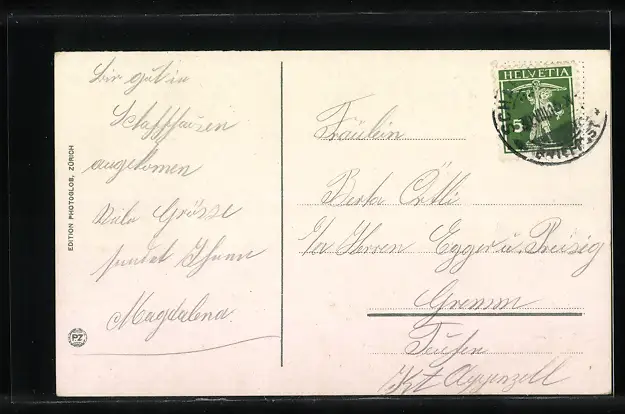 Bin gut in
Schaffhausen
angekomen
Viele Grüsse
sendet Ihnen
Magdalena.
EDITION PHOTOGLOB, ZÜRICH
PZ
HELVETIA
5
Fräulein
Berta Örtli
Herren Egger u. Preisig
Gremm
Teufen
Kt Appenzell